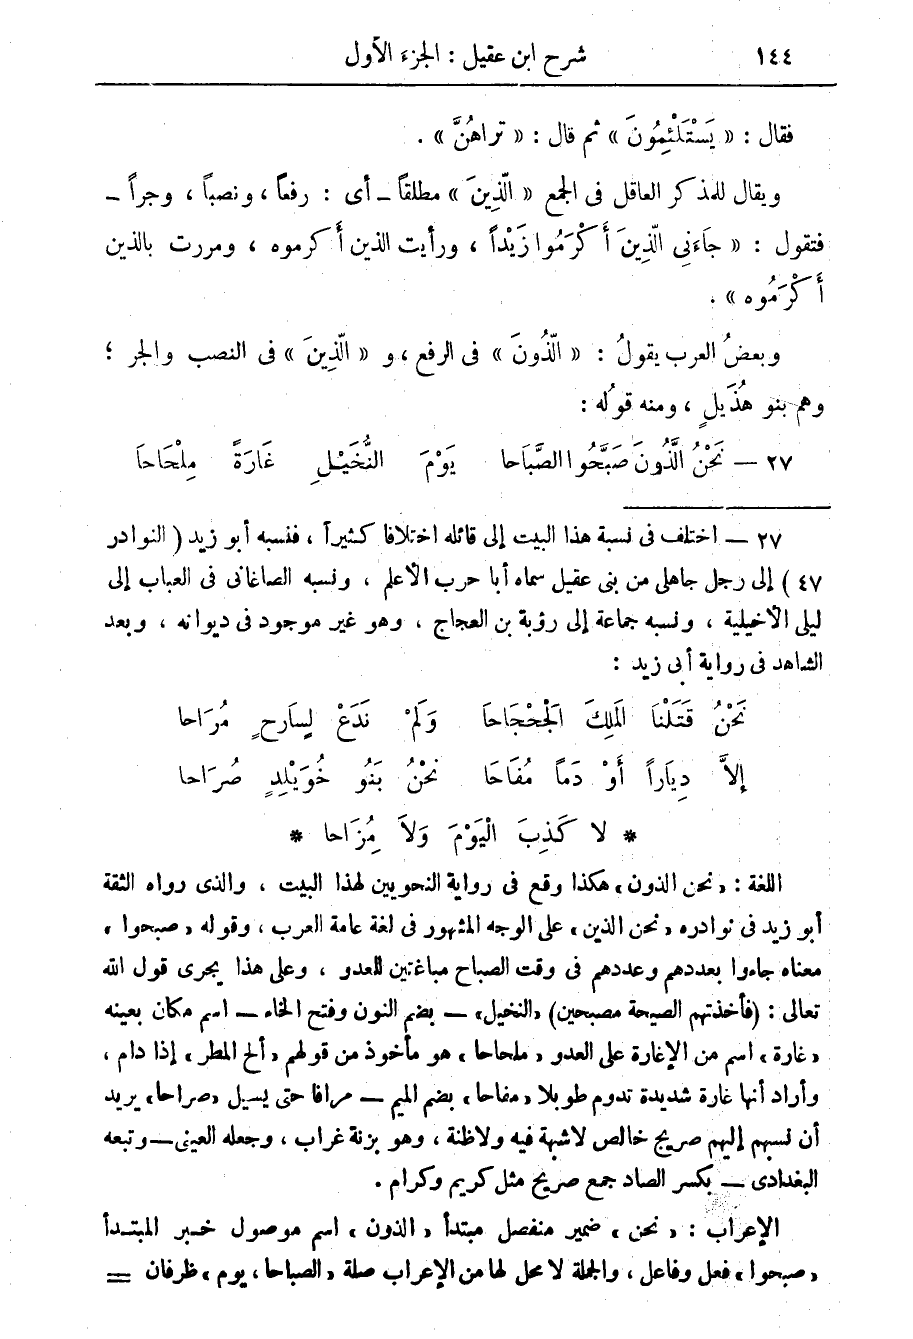 ١٤٤ شرح ابن عقيل : الجزء الأول
فقال : « يَسْتَلْئِمُونَ » ثم قال : « تراهُنَّ » .
ويقال للمذكر العاقل فى الجمع « الَّذِينَ » مطلقاً ـ أى : رفعاً ، ونصباً ، وجراً ـ
فتقول : « جَاءَنِى الَّذِينَ أَكْرَمُوا زَيْداً ، ورأيت الذين أكرموه ، ومررت بالذين
أَكْرَمُوه » .
وبعضُ العرب يقولُ : « الَّذُونَ » فى الرفع ، و « الَّذِينَ » فى النصب والجر ؛
وهم بنو هُذَيلٍ ، ومنه قولُه :
٢٧ — نَحْنُ الَّذُونَ صَبَّحُوا الصَّبَاحا يَوْمَ النُّخَيْلِ غَارَةً مِلْحَاحاَ
٢٧ — اختلف فى نسبة هذا البيت إلى قائله اختلافا كثيراً ، فنسبه أبو زيد ( النوادر
٤٧ ) إلى رجل جاهلى من بنى عقيل سماه أبا حرب الأعلم ، ونسبه الصاغانى فى العباب إلى
ليلى الأخيلية ، ونسبه جماعة إلى رؤبة بن العجاج ، وهو غير موجود فى ديوانه ، وبعد
الشاهد فى رواية أبى زيد :
نَحْنُ قَتَلْنَا الَملِكَ الْجَحْجَاحاَ وَلَمْ نَدَعْ لِسَارحٍ مُرَاحا
إلاَّ دِيَاراً أَوْ دَماً مُفَاحَا نحْنُ بَنُو خُوَيْلِدٍ صُرَاحا
* لا كَذِبَ الْيَوْمَ وَلاَ مِزَاحا *
اللغة : « نحن الذون » هكذا وقع فى رواية النحويين لهذا البيت ، والذى رواه الثقة
أبو زيد فى نوادره « نحن الذين » على الوجه المشهور فى لغة عامة العرب ، وقوله « صبحوا »
معناه جاءوا بعددهم وعددهم فى وقت الصباح مباغتين للعدو ، وعلى هذا يجرى قول الله
تعالى : (فأخذتهم الصيحة مصبحين) « النخيل » — بضم النون وفتح الخاء — اسم مكان بعينه
« غارة » اسم من الإغارة على العدو « ملحاحا » هو مأخوذ من قولهم « ألح المطر » إذا دام ،
وأراد أنها غارة شديدة تدوم طويلا « مفاحا » بضم الميم — مراقا حتى يسيل « صراحا » يريد
أن نسبهم إليهم صريح خالص لا شبهة فيه ولا ظنة ، وهو بزنة غراب ، وجعله العينى — وتبعه
البغدادى — بكسر الصاد جمع صريح مثل كريم وكرام .
الإعراب : « نحن » ضمير منفصل مبتدأ « الذون » اسم موصول خبر المبتدأ
« صبحوا » فعل وفاعل ، والجملة لا محل لها من الإعراب صلة « الصباحا ، يوم » ظرفان =